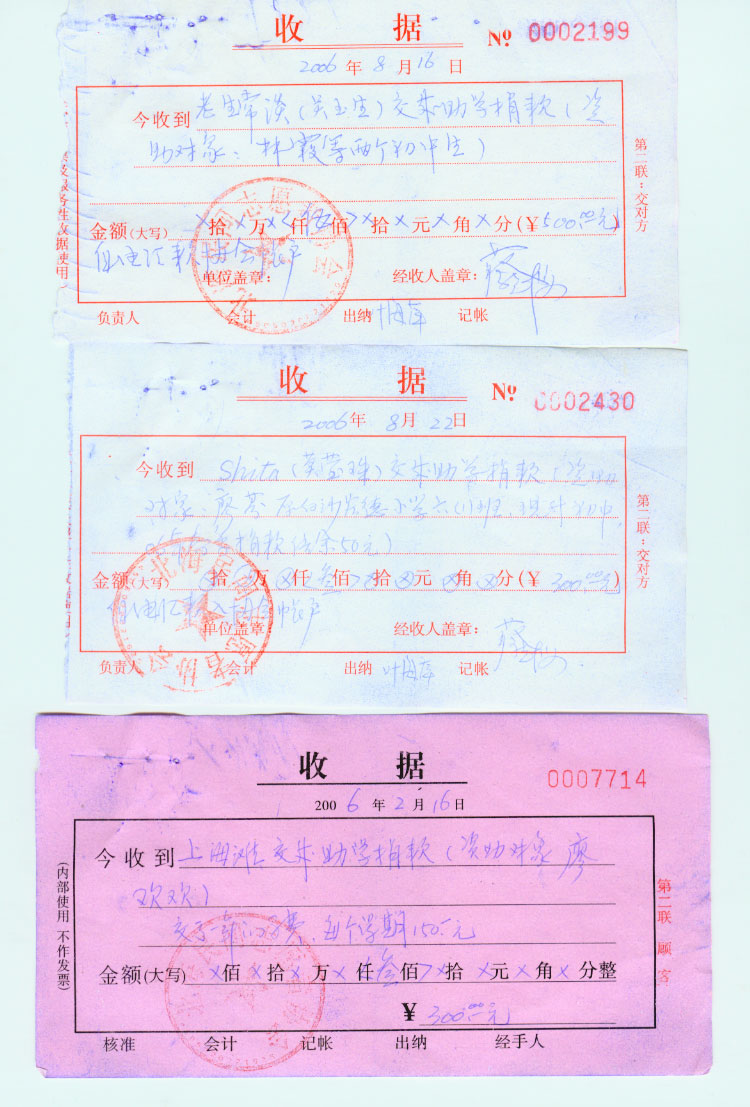 收 据 № 0002199
2006 年 8 月 16 日
今收到 老生常谈（吴玉生）交来助学捐款（资
助对象：林霞等两个初中生）
金额(大写) × 拾 × 万 × 仟 伍 佰 × 拾 × 元 × 角 × 分(¥ 500.00元)
单位盖章： 经收人盖章：
负责人 会计 出纳 记帐
第二联：交对方
收 据 № 0002430
2006 年 8 月 22 日
今收到 Shita（莫莹珠）交来助学捐款（资助
对象：廖芬 小学六(1)班，现升初中，
捐款结余50元）
金额(大写) ⊗ 拾 ⊗ 万 ⊗ 仟 叁 佰 ⊗ 拾 ⊗ 元 ⊗ 角 ⊗ 分(¥ 300.00元)
单位盖章： 经收人盖章：
负责人 会计 出纳 记帐
第二联：交对方
收 据 0007714
2006 年 2 月 16 日
今收到 上海滩 交来助学捐款（资助对象 廖
欢欢）
每个学期150元
金额(大写) × 佰 × 拾 × 万 × 仟 叁 佰 × 拾 × 元 × 角 × 分整
¥ 300.00元
核准 会计 记帐 出纳 经手人
(内部使用 不作发票)
第二联 顾客